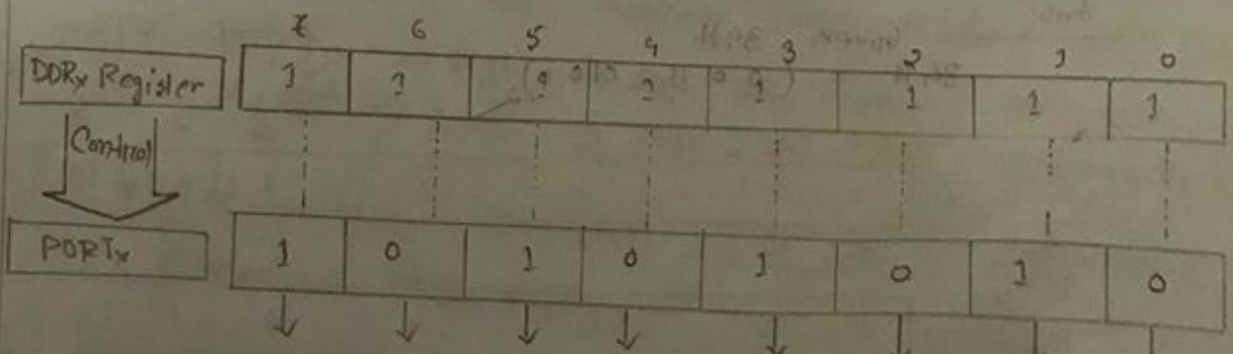 7 6 5 4 3 2 1 0
DDRx Register 1 1 1 1 1 1 1 1
Control
PORTx 1 0 1 0 1 0 1 0